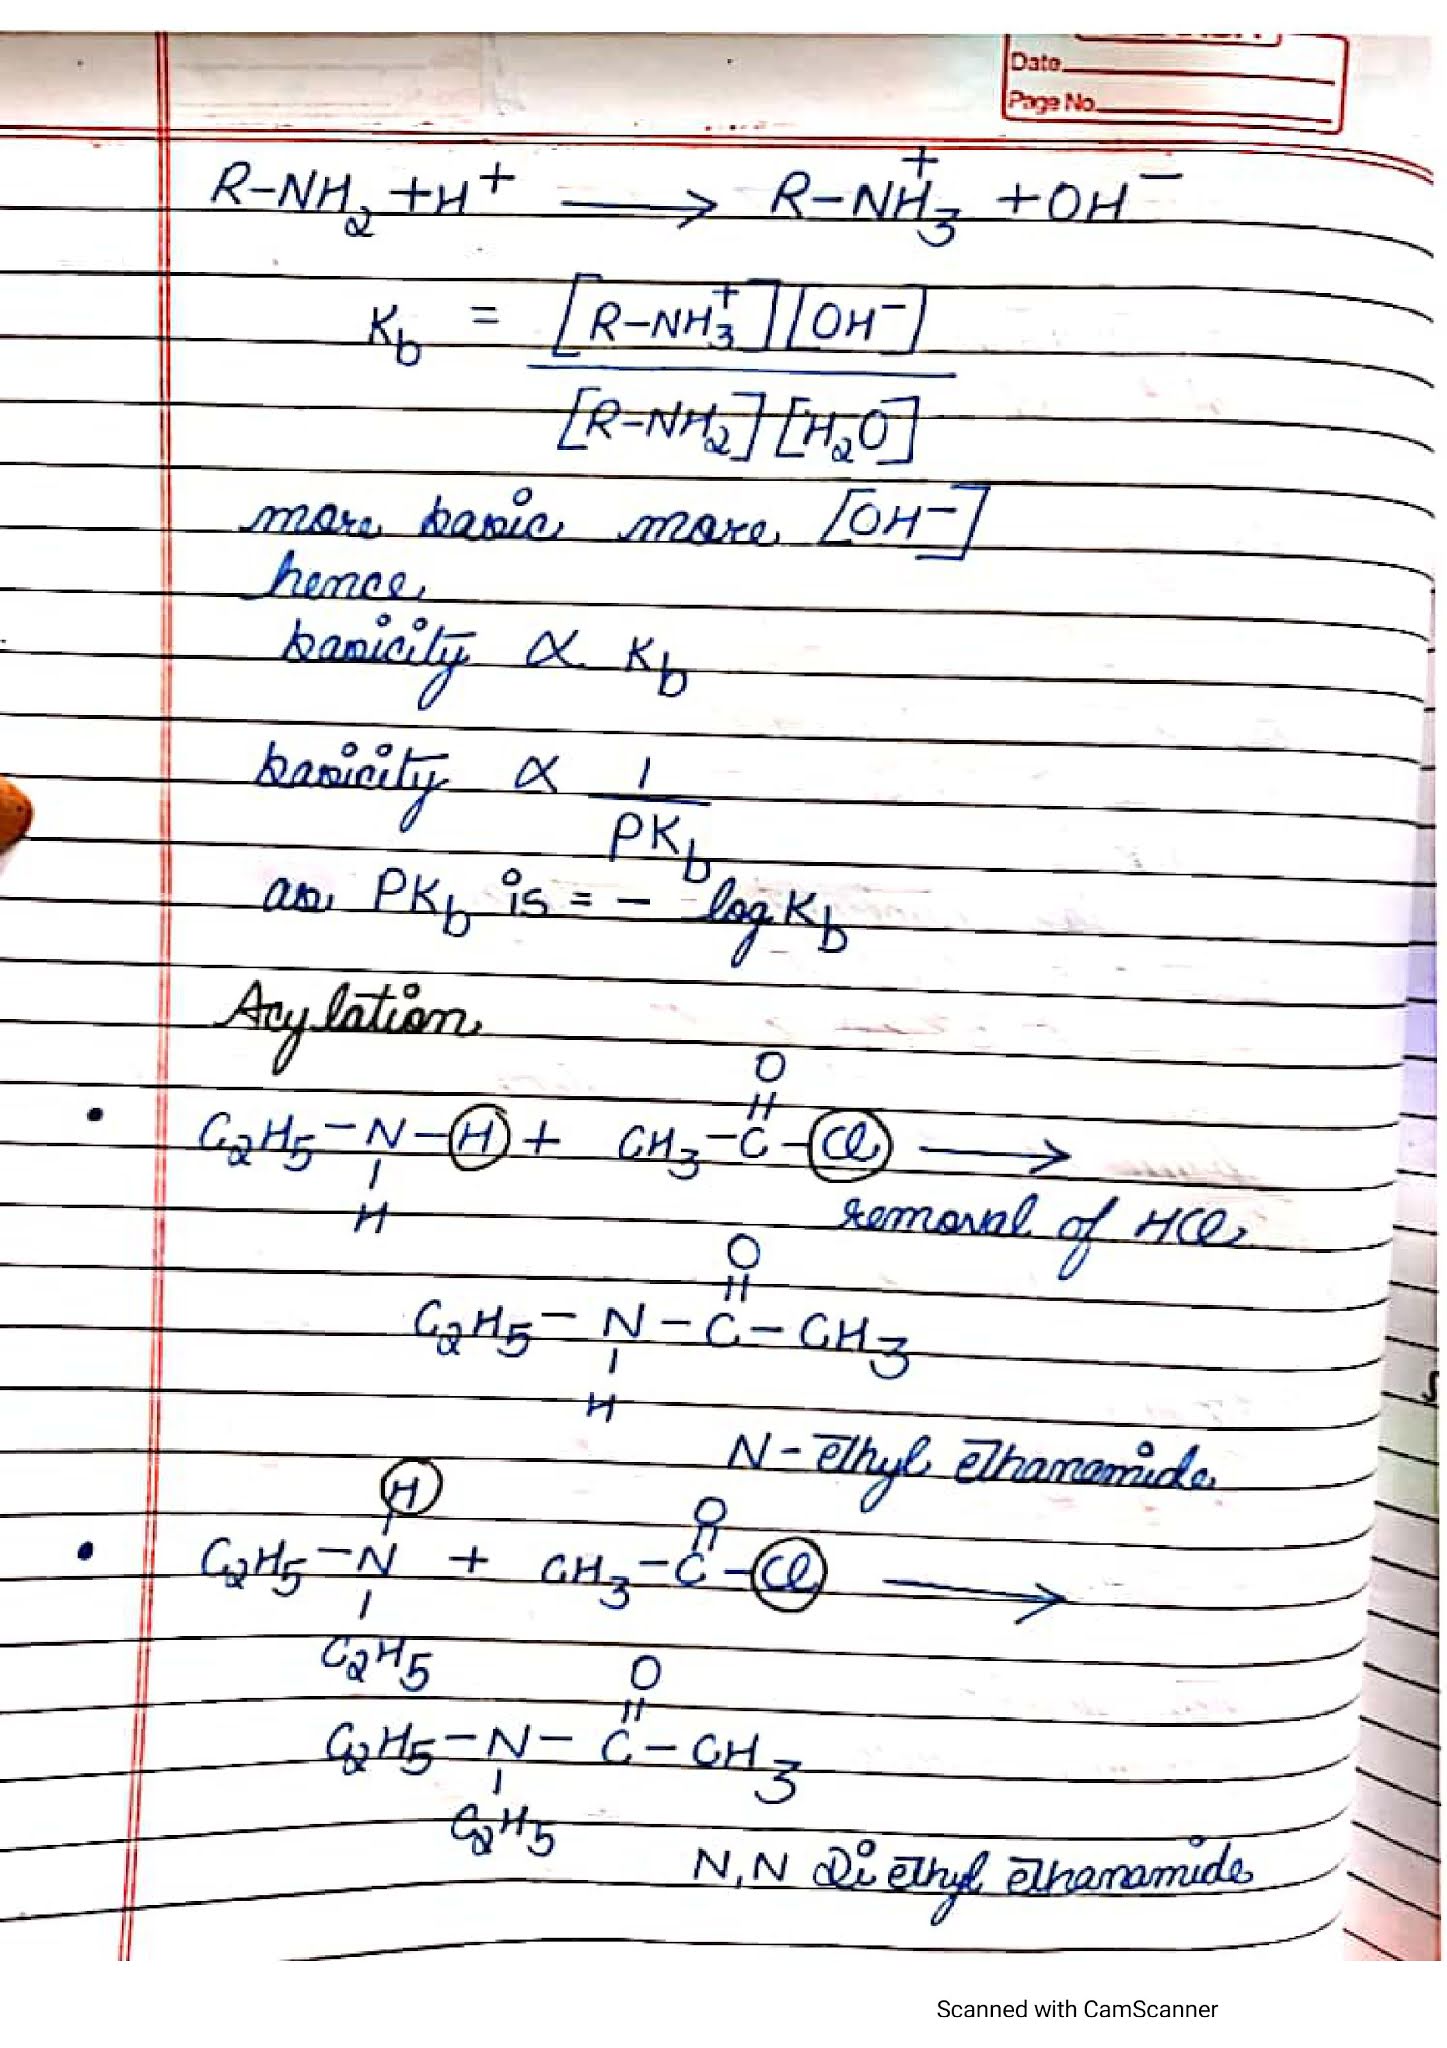 Date
Page No.
R-NH₂ + H⁺ ⟶ R-NH₃⁺ + OH⁻
K_b = [R-NH₃⁺] [OH⁻]
[R-NH₂] [H₂O]
more basic more [OH⁻]
hence
basicity ∝ K_b
basicity ∝ 1
PK_b
as PK_b is = - log K_b
Acylation
O
||
• C₂H₅-N-H + CH₃-C-Cl ⟶
|
H removal of HCl
O
||
C₂H₅-N-C-CH₃
|
H
N-ethyl ethanamide
H O
| ||
• C₂H₅-N + CH₃-C-Cl ⟶
|
C₂H₅
O
||
C₂H₅-N-C-CH₃
|
C₂H₅
N,N Di ethyl ethanamide
Scanned with CamScanner